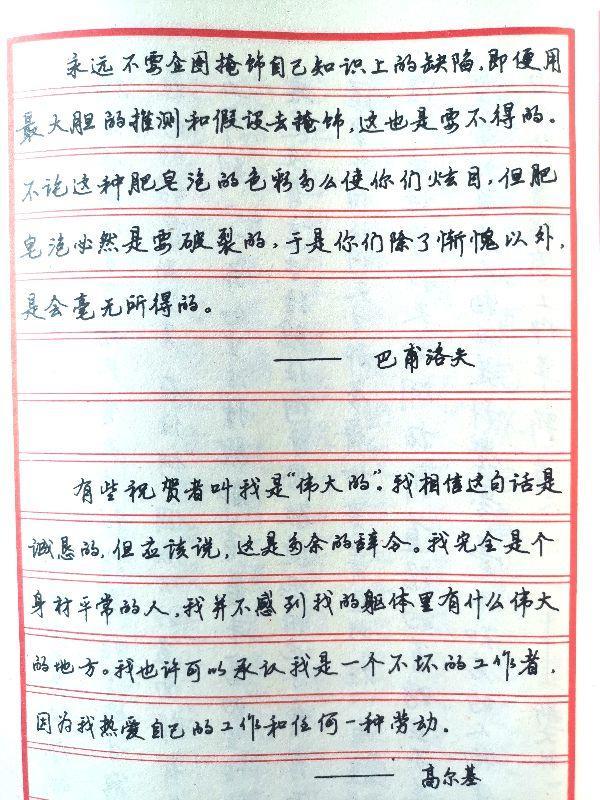 永远不要企图掩饰自己知识上的缺陷,即便用
最大胆的推测和假设去掩饰,这也是要不得的。
不论这种肥皂泡的色彩多么使你们炫目,但肥
皂泡必然是要破裂的,于是你们除了惭愧以外,
是会毫无所得的。
—— 巴甫洛夫
有些祝贺者叫我是“伟大的”。我相信这句话是
诚恳的,但应该说,这是多余的辞令。我完全是个
身材平常的人,我并不感到我的躯体里有什么伟大
的地方。我也许可以承认我是一个不坏的工作者,
因为我热爱自己的工作和任何一种劳动。
—— 高尔基